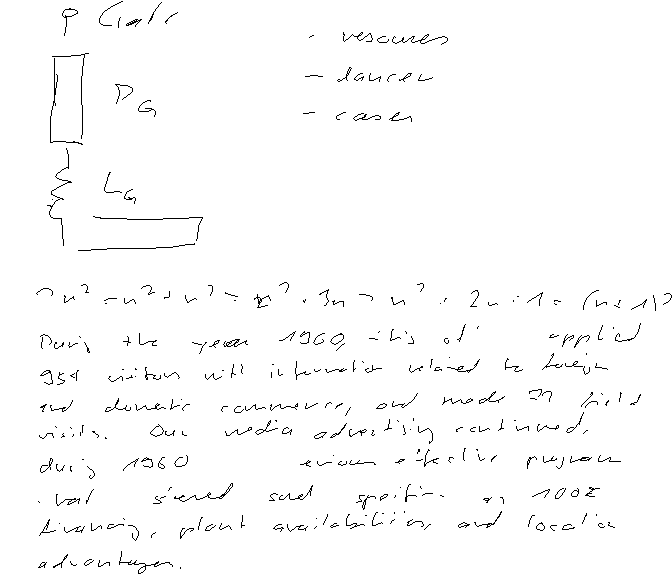 Gate
- resources
- lancer
- cases
R_G
L_G
2n² = n² + n² ≥ n² + 3n > n² + 2n + 1 = (n + 1)²
During the year 1960, this of applied
954 visitors with information related to foreign
and domestic commerce, and made field
visits. Our media advertising continued,
during 1960 effective program
and specific 100%
financing, plant availabilities, and location
advantages.